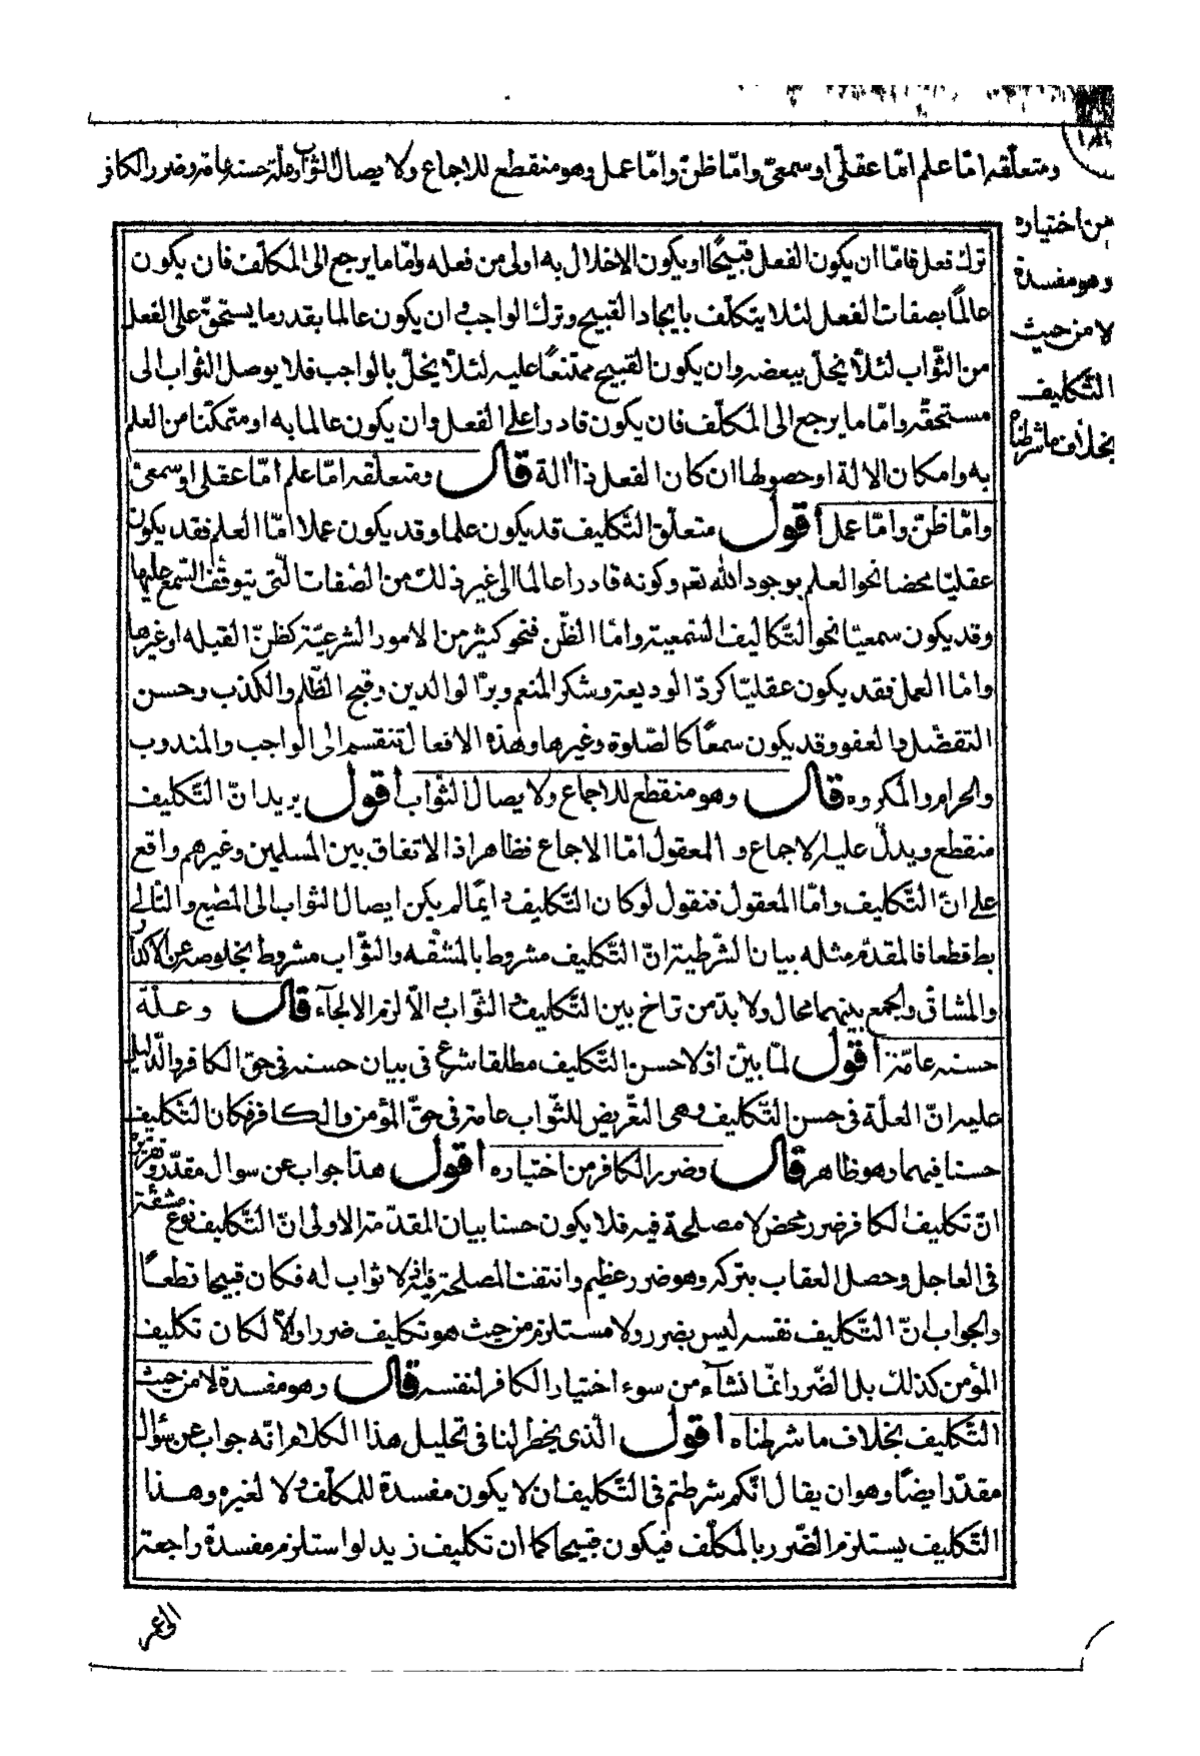 ومتعلّقه امّا علم امّا عقلىّ او سمعىّ وامّا ظنّ وامّا عمل وهو منقطع للاجماع ولا يصال الثواب وعلّة حسنه عامّة وضرر الكافر
من اختياره
وهو مفسدة
لا من حيث
التّكليف
بخلاف ما شرطناه
ترك فعل فامّا ان يكون الفعل قبيحًا او يكون الاخلال به اولى من فعله وامّا ما يرجع الى المكلّف فان يكون
عالمًا بصفات الفعل لئلا يتكلّف بايجاد القبيح وترك الواجب وان يكون عالما بقدر ما يستحقّ على الفعل
من الثّواب لئلّا يخلّ ببعضه وان يكون القبيح ممتنعًا عليه لئلّا يخلّ بالواجب فلا يوصل الثّواب الى
مستحقّه وامّا ما يرجع الى المكلّف فان يكون قادرا على الفعل وان يكون عالما به او متمكّنا من العلم
به وامكان الالة او حصولها ان كان الفعل ذا الة قال ومتعلّقه امّا علم امّا عقلى او سمعىّ
وامّا ظنّ وامّا عمل اقول متعلّق التّكليف قد يكون علما وقد يكون عملا امّا العلم فقد يكون
عقليّا محضا نحو العلم بوجود الله تعم وكونه قادرا عالما الى غير ذلك من الصّفات الّتى يتوقّف السّمع عليها
وقد يكون سمعيّا نحو التّكاليف السّمعيّة وامّا الظّن فنحو كثير من الامور الشّرعيّة كظنّ القبله او غيرها
وامّا العمل فقد يكون عقليّا كردّ الوديعة وشكر المنعم وبرّ الوالدين وقبح الظّلم والكذب وحسن
التفضّل والعفو وقد يكون سمعًا كالصّلوة وغيرها وهذه الافعال تنقسم الى الواجب والمندوب
والحرام والمكروه قال وهو منقطع للاجماع ولا يصال الثّواب اقول يريد انّ التّكليف
منقطع ويدلّ عليه الاجماع و المعقول امّا الاجماع فظاهر اذ الاتفاق بين المسلمين وغيرهم واقع
على انّ التّكليف وامّا المعقول فنقول لو كان التّكليف دايمًا لم يكن ايصال الثواب الى المطيع والتّالى
بط قطعا فالمقدّم مثله بيان الشّرطية انّ التّكليف مشروط بالمشقّه والثّواب مشروط بخلوصه عن الاكدار
والمشاقّ والجمع بينهما محال ولا بدّ من تراخ بين التّكليف والثّواب والّا لزم الالجآء قال وعلّة
حسنه عامّة اقول لمّا بيّن اوّلا حسن التّكليف مطلقا شرع فى بيان حسنه فى حقّ الكافر والدّليل
عليه انّ العلّة فى حسن التّكليف وهى التّعريض للثّواب عامة فى حقّ المؤمن والكافر فكان التّكليف
حسنا فيهما وهو ظاهر قال وضرر الكافر من اختياره اقول هذا جواب عن سوال مقدّر وتقريره
انّ تكليف الكافر ضرر محض لا مصلحة فيه فلا يكون حسنا بيان المقدّمة الاولى انّ التّكليف نوع مشقّة
فى العاجل وحصل العقاب بتركه وهو ضرر عظيم وانتفت المصلحة فيه اذ لا ثواب له فكان قبيحا قطعًا
والجواب انّ التّكليف نفسه ليس بضرر ولا مستلزم من حيث هو تكليف ضررا والّا لكان تكليف
المؤمن كذلك بل الضّرر انّما نشآء من سوء اختيار الكافر لنفسه قال وهو مفسدة لا من حيث
التّكليف بخلاف ما شرطناه اقول الّذى يخطر لنا فى تحليل هذا الكلام انّه جواب عن سؤال
مقدّر ايضًا وهو ان يقال انّكم شرطتم فى التّكليف ان لا يكون مفسدة للمكلّف ولا لغيره وهذا
التّكليف يستلزم الضّرر بالمكلّف فيكون قبيحا كما ان تكليف زيد لو استلزم مفسدة راجعة
الى عمر